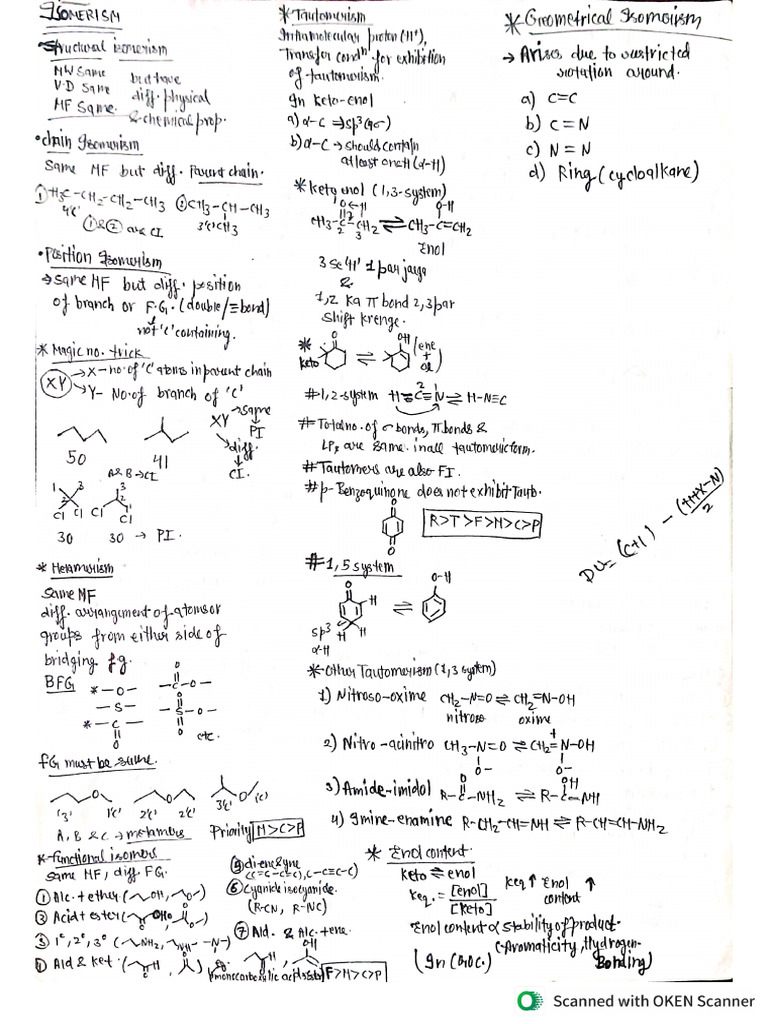 ISOMERISM
• Structural isomerism
MW Same
V.D Same
MF Same.
but have
diff. physical
& chemical prop.
• Chain Isomerism
Same MF but diff. Parent chain.
① H3C-CH2-CH2-CH3 ② CH3-CH-CH3
4'C' 3'C' CH3
① & ② are CI
• Position Isomerism
→ Same MF but diff. position
of branch or F.G. (double/≡bond)
not 'C' containing.
* Magic no. trick
XY → X-no.of 'C' atoms in parent chain
→ Y- No.of branch of 'C'
XY → same
↓
PI
→ diff.
↓
CI.
50 41
A & B → CI
1 2 3
Cl Cl Cl Cl
30 30 → PI.
* Metamerism
Same MF
diff. arrangement of atoms or
groups from either side of
bridging fg.
BFG
*-O-
-S-
*-C-
O
O
-C-O-
O
-S-O-
O
etc.
FG must be same.
(3') 1'C' 2'C' 2'C' 3'C' (C)
A, B & C → metamers Priority M>C>P
*-functional isomers
Same MF, diff FG.
① Alc. + ether (OH, O)
② Acid + ester
③ 1°, 2°, 3° (NH2, NH -N-)
④ Ald & Ket.
⑤ di-ene & yne
(C=C-C=C), C-C≡C-C)
⑥ Cyanide isocyanide.
(R-CN, R-NC)
⑦ Ald. & Alc. + ene.
F>M>C>P
* Tautomerism
Intramolecular proton (H+),
transfer condn for exhibition
of tautomerism.
In Keto-enol
a) α-C ⇒ sp3 (4σ)
b) α-C → should contain
atleast one H (α-H)
* keto enol (1,3-system)
CH3-C-CH2 ⇌ CH3-C=CH2
2 3
Enol
3 se 'H' 1 par jayga
&
1,2 ka π bond 2,3 par
shift krenge.
*
keto ⇌ OH (ene
+
ol)
#1,2-system H-C≡N ⇌ H-N≡C
# Total no. of σ bonds, π bonds &
LPs are same in all tautomeric form.
# Tautomers are also FI.
# p-Benzoquinone does not exhibit Taut.
O
O
R>T>F>M>C>P
# 1,5 system
O-H
sp3 H H
α-H
*-Other Tautomerism (1,3 system)
1) Nitroso-oxime CH2-N=O ⇌ CH2=N-OH
nitroso oxime
2) Nitro-acinitro CH3-N=O ⇌ CH2=N-OH
O- O-
3) Amide-imidol R-C-NH2 ⇌ R-C-NH
4) Imine-enamine R-CH2-CH=NH ⇌ R-CH=CH-NH2
* Enol content.
keto ⇌ enol
Keq. = [enol]
[Keto]
Keq ↑ Enol ↑
content
Enol content ∝ stability of product.
(Aromaticity, Hydrogen-
Bonding)
* Geometrical Isomerism
→ Arises due to restricted
rotation around.
a) C=C
b) C=N
c) N=N
d) Ring (cycloalkane)
DU = (C+1) - (H+X-N)
2
Scanned with OKEN Scanner